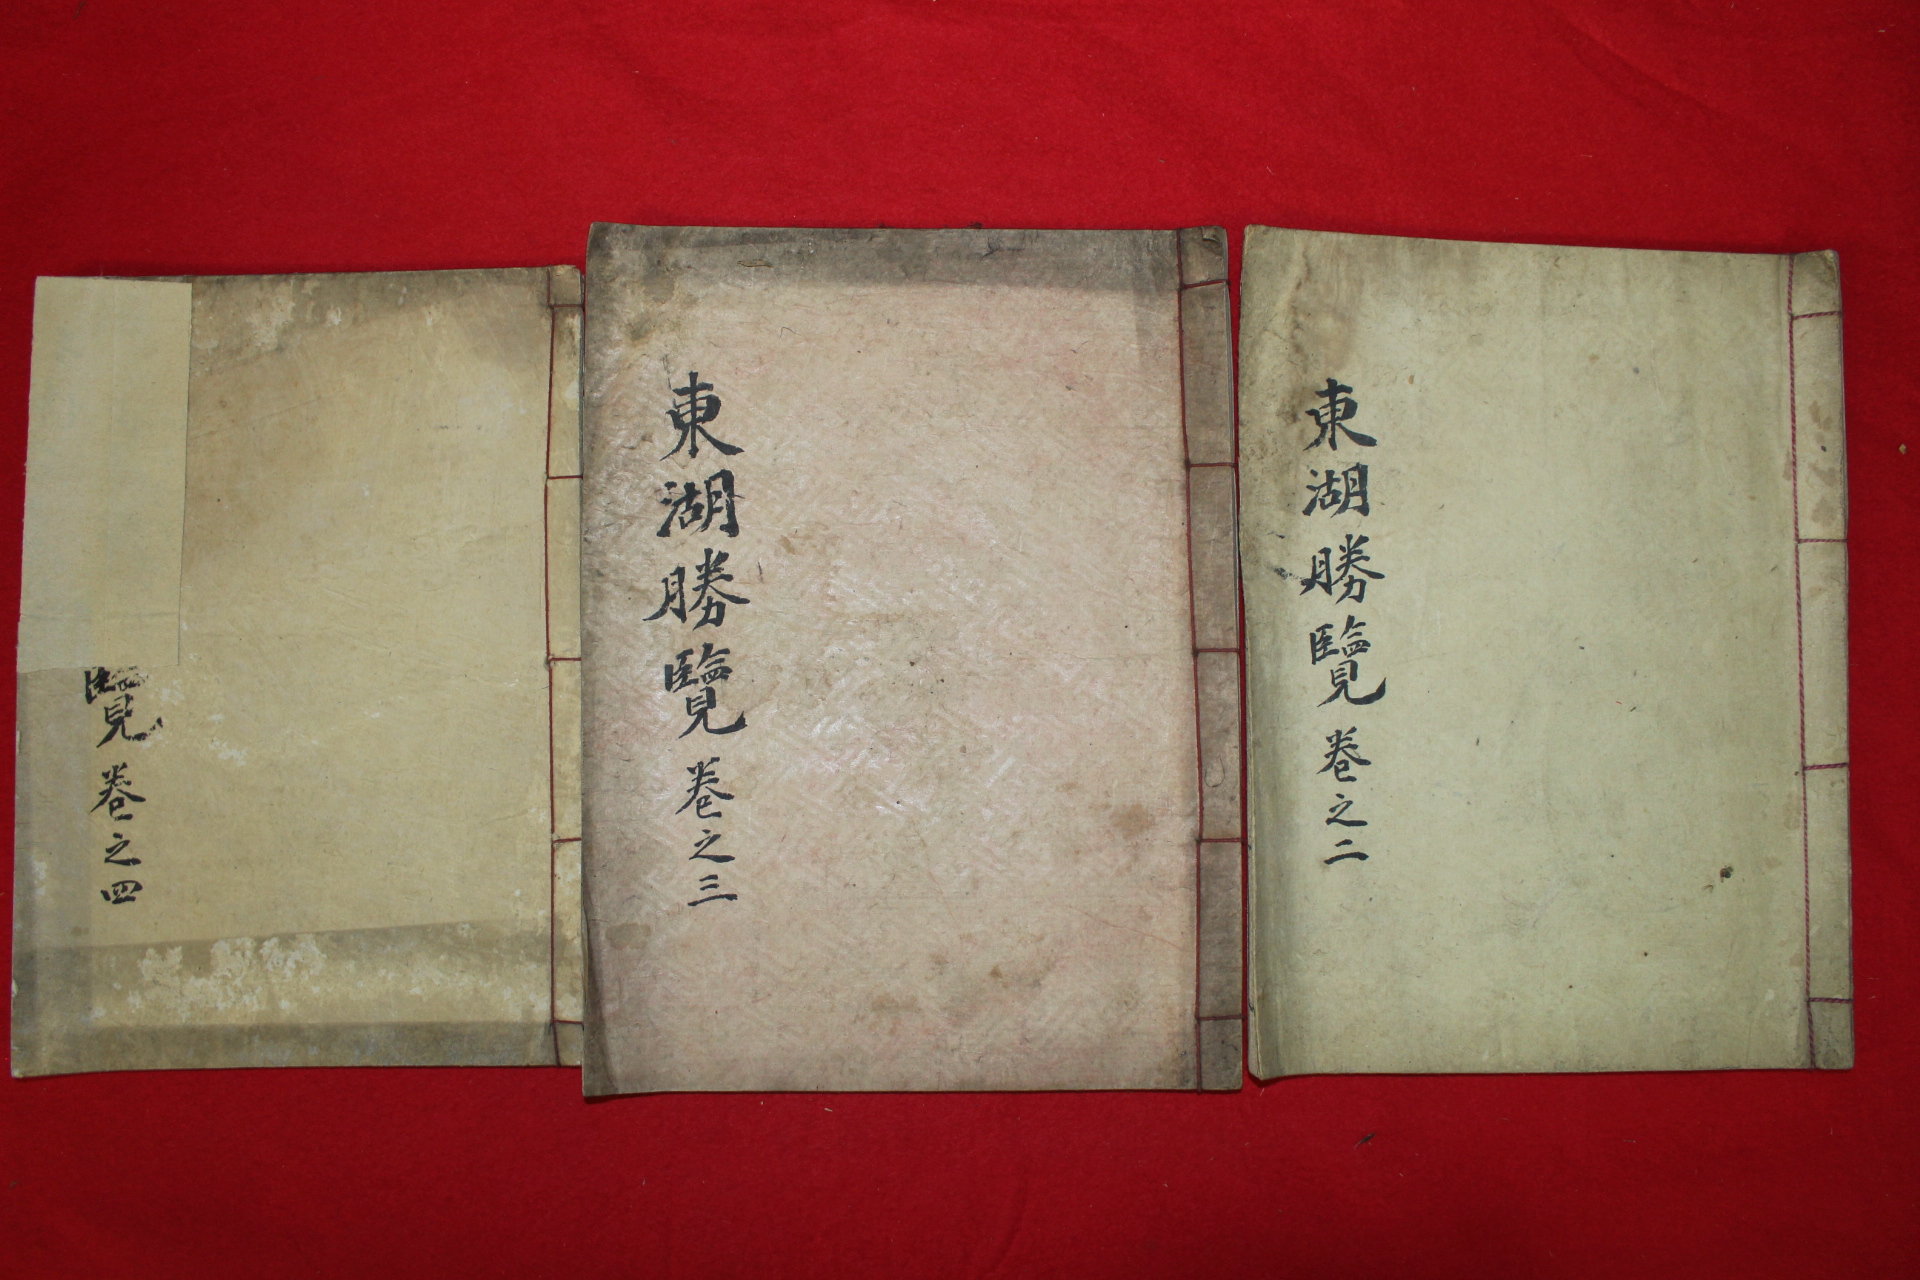 東湖勝覽 卷之二
東湖勝覽 卷之三
覽 卷之四